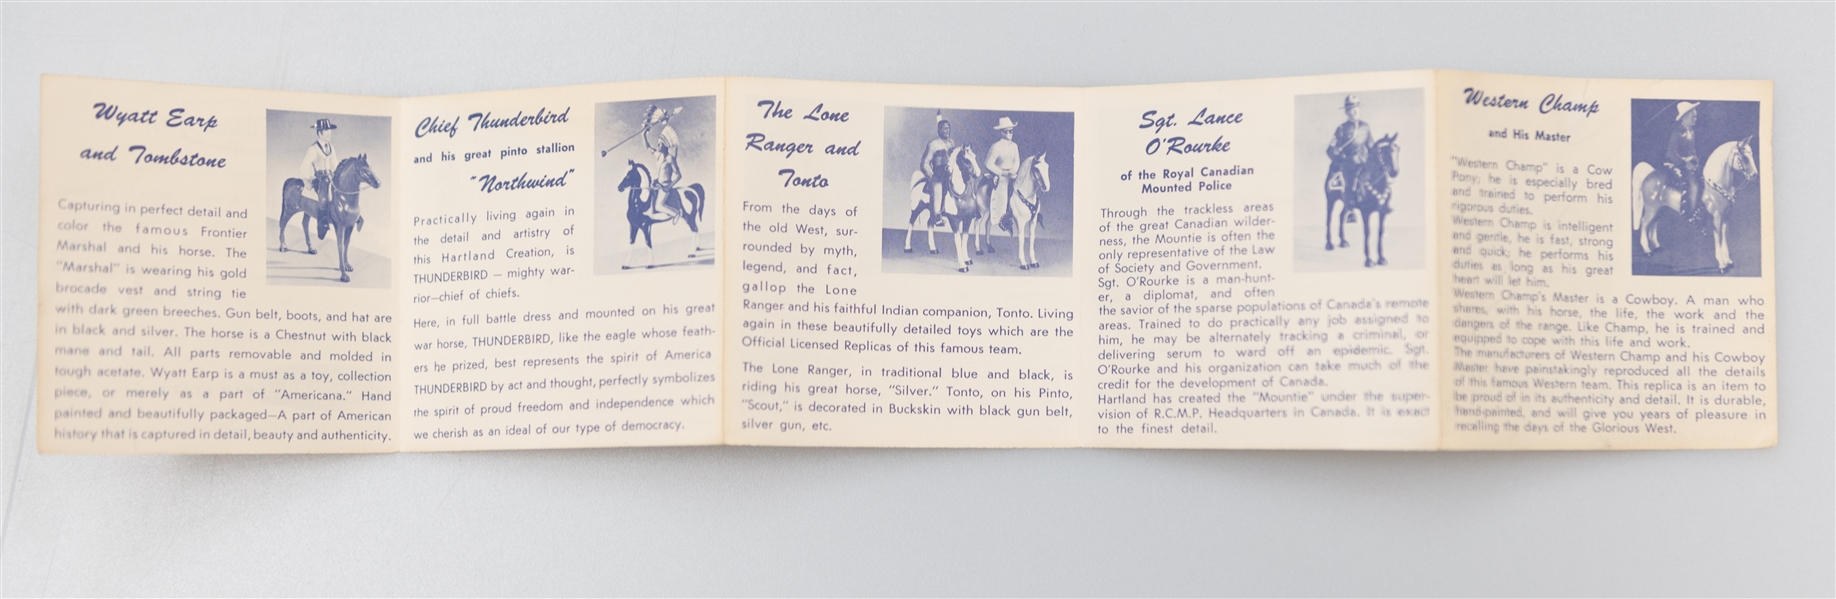 Wyatt Earp
and Tombstone
Capturing in perfect detail and
color the famous Frontier
Marshal and his horse. The
"Marshal" is wearing his gold
brocade vest and string tie
with dark green breeches. Gun belt, boots, and hat are
in black and silver. The horse is a Chestnut with black
mane and tail. All parts removable and molded in
tough acetate. Wyatt Earp is a must as a toy, collection
piece, or merely as a part of "Americana." Hand
painted and beautifully packaged—A part of American
history that is captured in detail, beauty and authenticity.
Chief Thunderbird
and his great pinto stallion
"Northwind"
Practically living again in
the detail and artistry of
this Hartland Creation, is
THUNDERBIRD — mighty war-
rior—chief of chiefs.
Here, in full battle dress and mounted on his great
war horse, THUNDERBIRD, like the eagle whose feath-
ers he prized, best represents the spirit of America
THUNDERBIRD by act and thought, perfectly symbolizes
the spirit of proud freedom and independence which
we cherish as an ideal of our type of democracy.
The Lone
Ranger and
Tonto
From the days of
the old West, sur-
rounded by myth,
legend, and fact,
gallop the Lone
Ranger and his faithful Indian companion, Tonto. Living
again in these beautifully detailed toys which are the
Official Licensed Replicas of this famous team.
The Lone Ranger, in traditional blue and black, is
riding his great horse, "Silver." Tonto, on his Pinto,
"Scout," is decorated in Buckskin with black gun belt,
silver gun, etc.
Sgt. Lance
O'Rourke
of the Royal Canadian
Mounted Police
Through the trackless areas
of the great Canadian wilder-
ness, the Mountie is often the
only representative of the Law
of Society and Government.
Sgt. O'Rourke is a man-hunt-
er, a diplomat, and often
the savior of the sparse populations of Canada's remote
areas. Trained to do practically any job assigned to
him, he may be alternately tracking a criminal, or
delivering serum to ward off an epidemic. Sgt.
O'Rourke and his organization can take much of the
credit for the development of Canada.
Hartland has created the "Mountie" under the super-
vision of R.C.M.P. Headquarters in Canada. It is exact
to the finest detail.
Western Champ
and His Master
"Western Champ" is a Cow
Pony; he is especially bred
and trained to perform his
rigorous duties.
Western Champ is intelligent
and gentle, he is fast, strong
and quick; he performs his
duties as long as his great
heart will let him.
Western Champ's Master is a Cowboy. A man who
shares, with his horse, the life, the work and the
dangers of the range. Like Champ, he is trained and
equipped to cope with this life and work.
The manufacturers of Western Champ and his Cowboy
Master have painstakingly reproduced all the details
of this famous Western team. This replica is an item to
be proud of in its authenticity and detail. It is durable,
hand-painted, and will give you years of pleasure in
recalling the days of the Glorious West.